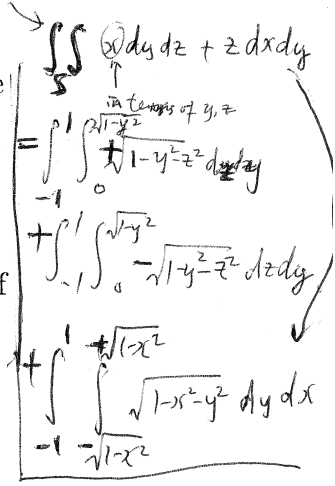 ∬_S x dy dz + z dx dy
in terms of y, z
= ∫_{-1}^{1} ∫_{0}^{√(1-y²)} +√(1-y²-z²) dz dy
+ ∫_{-1}^{1} ∫_{0}^{√(1-y²)} -√(1-y²-z²) dz dy
+ ∫_{-1}^{1} ∫_{-√(1-x²)}^{+√(1-x²)} √(1-x²-y²) dy dx